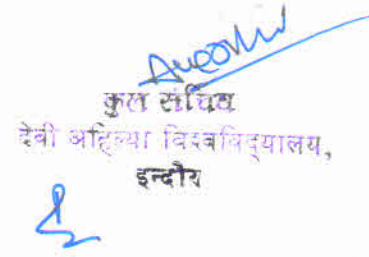 कुल सचिव
देवी अहिल्या विश्वविद्यालय,
इन्दौर